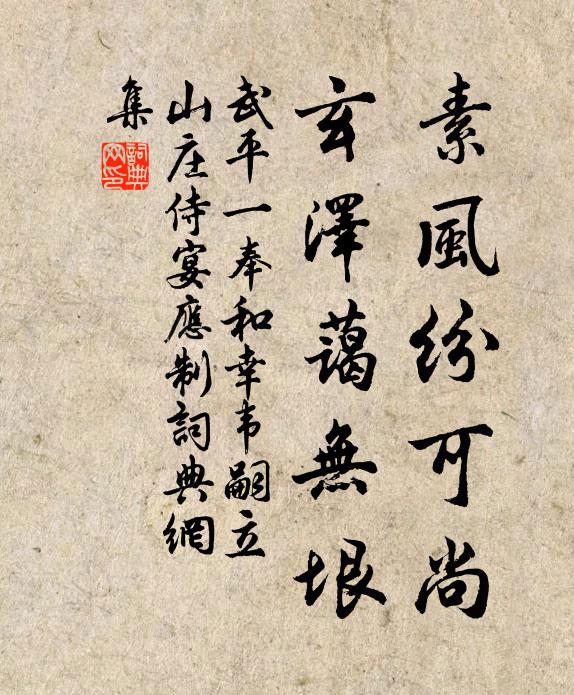 素風紛可尚
玄澤藹無垠
武平一奉和幸韦嗣立
山庄侍宴應制詞典網
集
詞典
网印